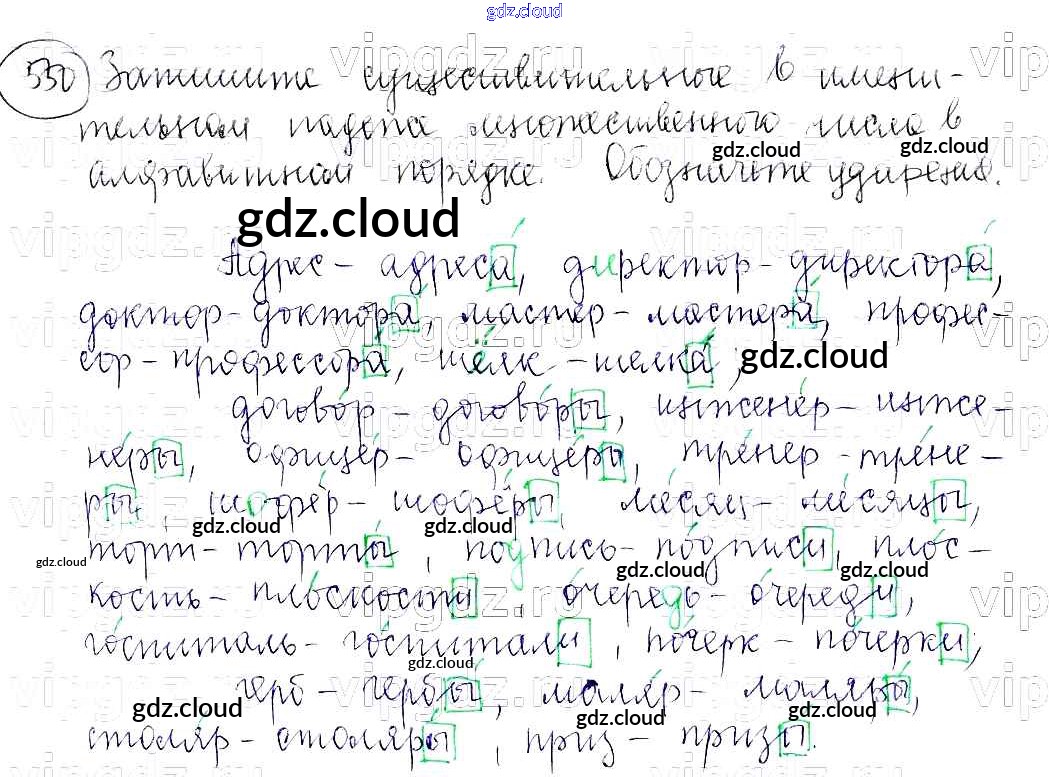 gdz.cloud
530 Запишите существительные в имени-
тельном падеже множественного числа в
gdz.cloud gdz.cloud
алфавитном порядке. Обозначьте ударение.
gdz.cloud
Адрес - адреса́, директор - директора́,
доктор - доктора́, мастер - мастера́, профес-
сор - профессора́, шёлк - шелка́;
gdz.cloud
догово́р - догово́ры, инжене́р - инже-
не́ры, офице́р - офице́ры, тре́нер - тре́не-
ры, шофёр - шофёры, ме́сяц - ме́сяцы,
gdz.cloud gdz.cloud
торт - то́рты, по́дпись - по́дписи, пло́с-
gdz.cloud gdz.cloud gdz.cloud
кость - пло́скости, о́чередь - о́череди,
го́спиталь - го́спитали, по́черк - по́черки;
gdz.cloud
герб - гербы́, маляр - маляры́,
gdz.cloud gdz.cloud gdz.cloud
столя́р - столяры́, приз - призы́.
vipgdz.ru